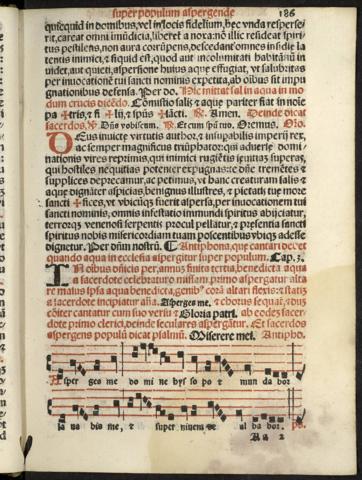 super populum aspergende 186
quicquid in domibus, vel in locis fidelium, hec vnda resperse
rit, careat omni imūdicia, liberet a noxa: nō illic resideat spiri
tus pestilens, non aura corrūpens, descendāt omnes insidie la
tentis inimici, & si quid est, quod aut incolumitati habitātiū in
uidet, aut quieti, aspersione huius aque effugiat, vt salubritas
per inuocationē tui sancti nominis expetita, ab oībus sit impu
gnationibus defensa. Per do. Hic mittat sal in aqua in mo
dum crucis dicēdo. Cōmistio salis & aque pariter fiat in noīe
pa✠tris, & fi✠lij, & spūs✠sācti. ℟. Amen. Deinde dicat
sacerdos, ℣. Dñs vobiscum. ℟. Et cum spū tuo. Oremus. Oīo.
DEus inuicte virtutis author, & insupabilis imperij rex,
ac semper magnificus triūphator: qui aduerse domi-
nationis vires reprimis, qui inimici rugiētis seuitiā superas,
qui hostiles nequitias potenter expugnas: te dñe tremētes &
supplices deprecamur, ac petimus, vt hanc creaturam salis &
aque digāter aspicias, benignus illustres, & pietatis tue more
sancti✠fices, vt vbicūqȝ fuerit aspersa, per inuocationem tui
sancti nominis, omnis infestatio immundi spiritus abijciatur,
terrorqȝ venenosi serpentis procul pellatur, & presentia sancti
spiritus nobis misericordiam tuam poscentibus vbiqȝ adesse
dignetur. Per dñm nostrū. ¶ Antiphona, que cantari debet
quando aqua in ecclesia aspergitur super populum. Cap. 3.
IN oībus dñicis per annū finita tertia, benedicta aqua
a sacerdote celebraturo missam: primo aspergitur alta
re maius ipsa aqua benedicta, genibꝰ corā altari flexis: & statiȝ
a sacerdote incipiatur aña. Asperges me. & chorus sequaī, & dūȝ
cōiter cantatur cum suo versu & Gloria patri. ab eodez sacer-
dote primo clerici, deinde seculares aspergātur. Et sacerdos
aspergens populū dicat psalmū. Miserere mei. Antipho.
Asper ges me do mi ne hyſ so po & mun da bor
la va bis me, & super niuem de al ba bor. ps.
Aa 2